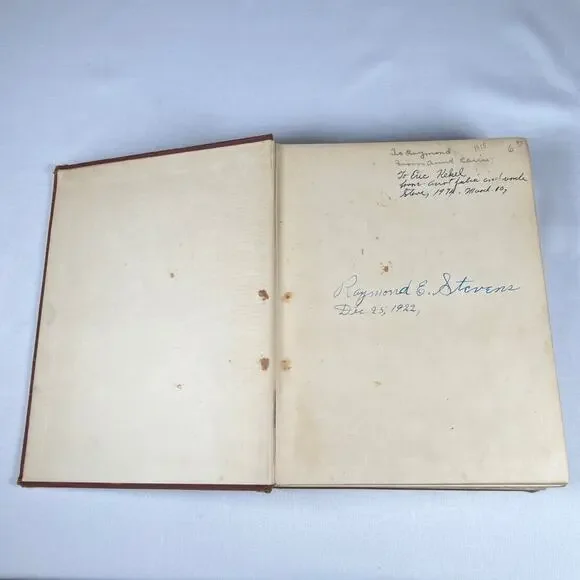 To Raymond
From Aunt Carrie
6
To Eric Kekel
from Aunt Julia and uncle
Steve, 1974. March 10,
Raymond E. Stevens
Dec 25, 1922,